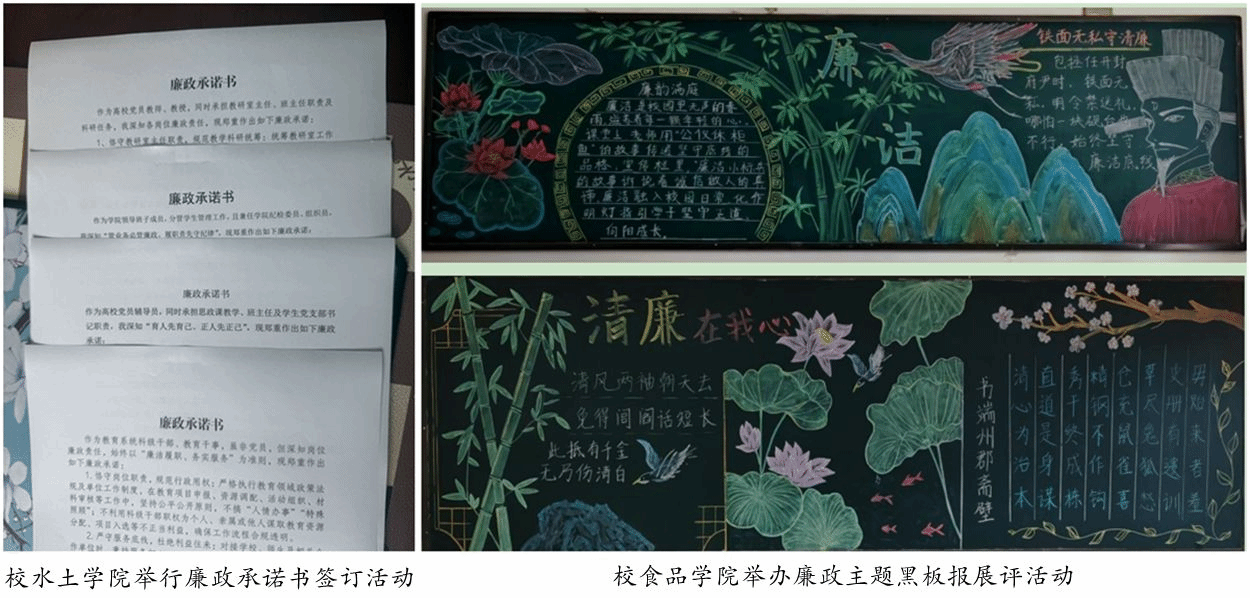 廉政承诺书
作为高校党员教师、教授，同时承担教研室主任、班主任职责及
科研任务，我深知各岗位廉政责任，现郑重作出如下廉政承诺：
1、恪守教研室主任职责，规范教学科研统筹：统筹教研室工作
廉政承诺书
作为学院领导班子成员，分管学生管理工作，且兼任学院纪检委员、组织员，
我深知“管业务必管廉政、履职责先守纪律”，现郑重作出如下廉政承诺：
廉政承诺书
作为高校党员辅导员，同时承担思政课教学、班主任及学生党支部书
记职责，我深知“育人先育己、正人先正己”，现郑重作出如下廉政
承诺：
廉政承诺书
作为教育系统科级干部、教育干事，虽非党员，但深知岗位
廉政责任，始终以“廉洁履职、务实服务”为准则，现郑重作出
如下廉政承诺：
1.恪守岗位职责，规范行政用权：严格执行教育领域政策法
规及单位工作制度，在教育项目申报、资源调配、活动组织、材
料审核等工作中，坚持公平公开原则，不搞“人情办事”“特殊
照顾”；不利用科级干部职权为个人、亲属或他人谋取教育资源
分配、项目入选等不正当利益，确保工作流程合规透明。
2.严守服务底线，杜绝利益往来：对接学校、师生及相关合
廉洁
廉韵满庭
廉洁是校园里无声的春
雨，滋养着每一颗年轻的心。
课堂上，老师用“公仪休拒
鱼”的故事传递坚守底线的
品格，宣传栏里，廉洁小标兵
的故事诉说着诚信做人的真
谛，廉洁融入校园日常，化作
明灯指引学子坚守正道，
向阳成长。
铁面无私守清廉
包拯任开封
府尹时，铁面无
私，明令禁送礼，
哪怕一块砚台也
不行，始终坚守
廉洁底线
清廉在我心
清风两袖朝天去
免得闾阎话短长
此抵有千金
无乃伤清白
书端州郡斋壁
清心为治本
直道是身谋
秀干终成栋
精钢不作钩
仓充鼠雀喜
草尽兔狐愁
史册有遗训
毋贻来者羞
校水土学院举行廉政承诺书签订活动
校食品学院举办廉政主题黑板报展评活动